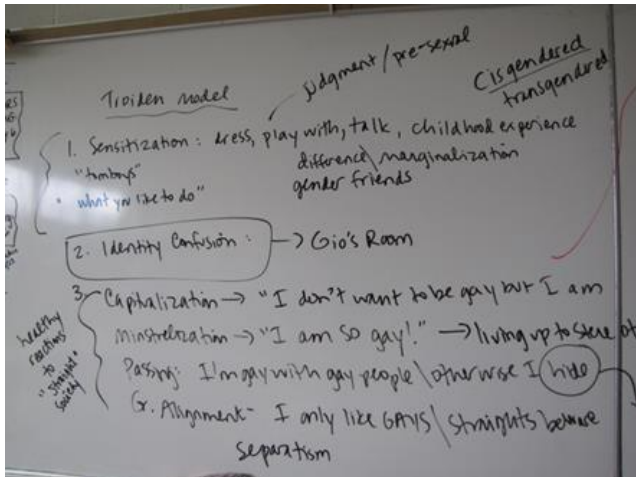 Troiden model
judgment / pre-sexual
Cisgendered
transgendered
1. Sensitization : dress, play with, talk, childhood experience
"tomboys"
difference \ marginalization
• what you like to do"
gender friends
2. Identity Confusion : → Gio's Room
3. Capitalization → "I don't want to be gay but I am
Minstrelization → "I am so gay!" → living up to
Passing: I'm gay with gay people \ otherwise I hide
Gr. Alignment - I only like GAYS \ straights beware
separatism
healthy
reactions
to
"straight"
society